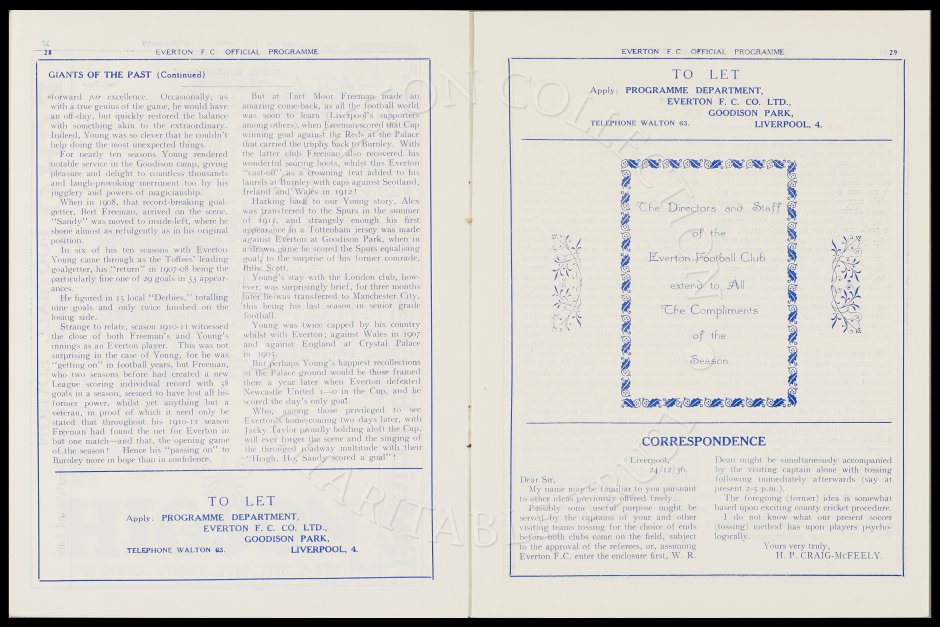 28
EVERTON F. C. OFFICIAL PROGRAMME
GIANTS OF THE PAST (Continued)
forward par excellence. Occasionally, as
with a true genius of the game, he would have
an off-day, but quickly restored the balance
with something akin to the extraordinary.
Indeed, Young was so clever that he couldn't
help doing the most unexpected things.
For nearly ten seasons Young rendered
notable service in the Goodison camp, giving
pleasure and delight to countless thousands
and laugh-provoking merriment too by his
jugglery and powers of magicianship.
When in 1908, that record-breaking goal-
getter, Bert Freeman, arrived on the scene,
"Sandy" was moved to inside-left, where he
shone almost as refulgently as in his original
position.
In six of his ten seasons with Everton
Young came through as the Toffees' leading
goalgetter, his "return" in 1907-08 being the
particularly fine one of 29 goals in 33 appear-
ances.
He figured in 15 local "Derbies," totalling
nine goals and only twice finished on the
losing side.
Strange to relate, season 1910-11 witnessed
the close of both Freeman's and Young's
innings as an Everton player. This was not
surprising in the case of Young, for he was
"getting on" in football years, but Freeman,
who two seasons before had created a new
League scoring individual record with 38
goals in a season, seemed to have lost all his
former power, whilst yet anything but a
veteran, in proof of which it need only be
stated that throughout his 1910-11 season
Freeman had found the net for Everton in
but one match—and that, the opening game
of the season! Hence his "passing on" to
Burnley more in hope than in confidence.
But at Turf Moor Freeman made an
amazing come-back, as all the football world
was soon to learn (Liverpool's supporters
among others), when Freeman scored that Cup
winning goal against the Reds at the Palace
that carried the trophy back to Burnley. With
the latter club Freeman also recovered his
wonderful scoring boots, whilst this Everton
"cast-off" as a crowning feat added to his
laurels at Burnley with caps against Scotland,
Ireland and Wales in 1912!
Harking back to our Young story, Alex
was transferred to the Spurs in the summer
of 1911, and strangely enough his first
appearance in a Tottenham jersey was made
against Everton at Goodison Park, when in
a drawn game he scored the Spurs equalising
goal, to the surprise of his former comrade,
Billy Scott.
Young's stay with the London club, how-
ever, was surprisingly brief, for three months
later he was transferred to Manchester City,
this being his last season in senior grade
football.
Young was twice capped by his country
whilst with Everton; against Wales in 1907
and against England at Crystal Palace
in 1905.
But perhaps Young's happiest recollections
of the Palace ground would be those framed
there a year later when Everton defeated
Newcastle United 1—0 in the Cup, and he
scored the day's only goal.
Who, among those privileged to see
Everton's home-coming two days later, with
Jacky Taylor proudly holding aloft the Cup,
will ever forget the scene and the singing of
the thronged roadway multitude with their
"Heigh, Ho, Sandy scored a goal"!
TO LET
Apply: PROGRAMME DEPARTMENT,
EVERTON F. C. CO. LTD.,
GOODISON PARK,
TELEPHONE WALTON 63. LIVERPOOL, 4.
EVERTON F. C. OFFICIAL PROGRAMME
29
TO LET
Apply: PROGRAMME DEPARTMENT,
EVERTON F. C. CO. LTD.,
GOODISON PARK,
TELEPHONE WALTON 63. LIVERPOOL, 4.
The Directors and Staff
of the
Everton Football Club
extend to All
The Compliments
of the
Season
CORRESPONDENCE
Liverpool,
24/12/36.
Dear Sir,
My name may be familiar to you pursuant
to other ideas previously offered freely.
Possibly some useful purpose might be
served by the captains of your and other
visiting teams tossing for the choice of ends
before both clubs come on the field, subject
to the approval of the referees, or, assuming
Everton F.C. enter the enclosure first, W. R.
Dean might be simultaneously accompanied
by the visiting captain alone with tossing
following immediately afterwards (say at
present 2-5 p.m.).
The foregoing (former) idea is somewhat
based upon exciting county cricket procedure.
I do not know what our present soccer
(tossing) method has upon players psycho-
logically.
Yours very truly,
H. P. CRAIG-McFEELY.